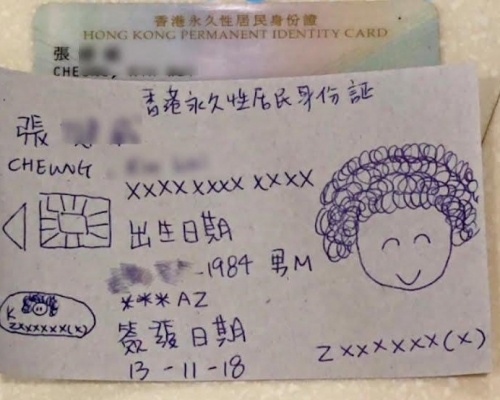 香港永久性居民身份證
HONG KONG PERMANENT IDENTITY CARD
張
香港永久性居民身份証
張
CHEUNG
XXXX XXXX XXXX
出生日期
-1984 男M
***AZ
簽發日期
13-11-18
K
ZXXXXXX(X)
ZXXXXXX(X)